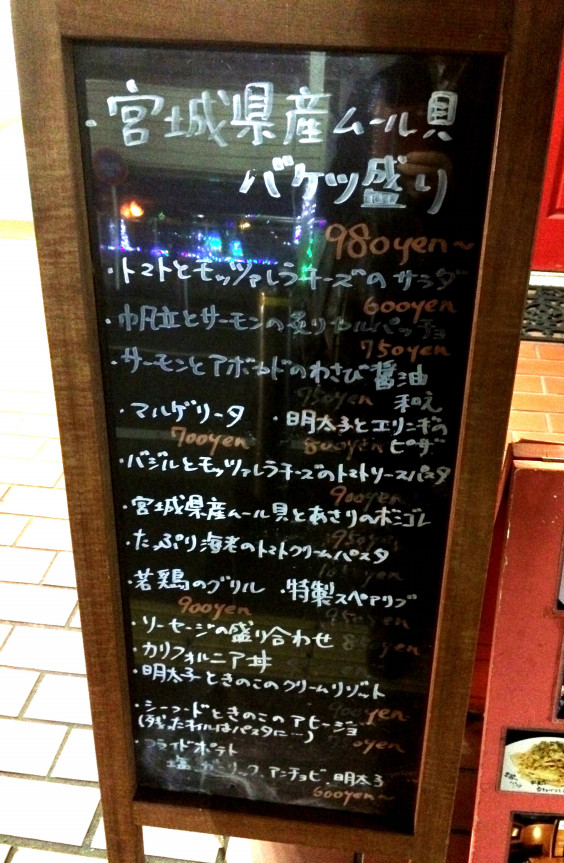 ・宮城県産ムール貝
バケツ盛り
980yen〜
・トマトとモッツァレラチーズのサラダ
600yen
・帆立とサーモンの炙りカルパッチョ
750yen
・サーモンとアボカドのわさび醤油
750yen 和え
・マルゲリータ ・明太子とエリンギの
700yen 800yen ピザ
・バジルとモッツァレラチーズのトマトソースパスタ
900yen
・宮城県産ムール貝とあさりのボンゴレ
950yen
・たっぷり海老のトマトクリームパスタ
yen
・若鶏のグリル ・特製スペアリブ
900yen 950yen
・ソーセージの盛り合わせ
・カリフォルニア丼
・明太子ときのこのクリームリゾット
900yen
・シーフードときのこのアヒージョ
(残ったオイルはパスタに…)
yen
・フライドポテト
塩、ガーリック、アンチョビ、明太子
600yen〜